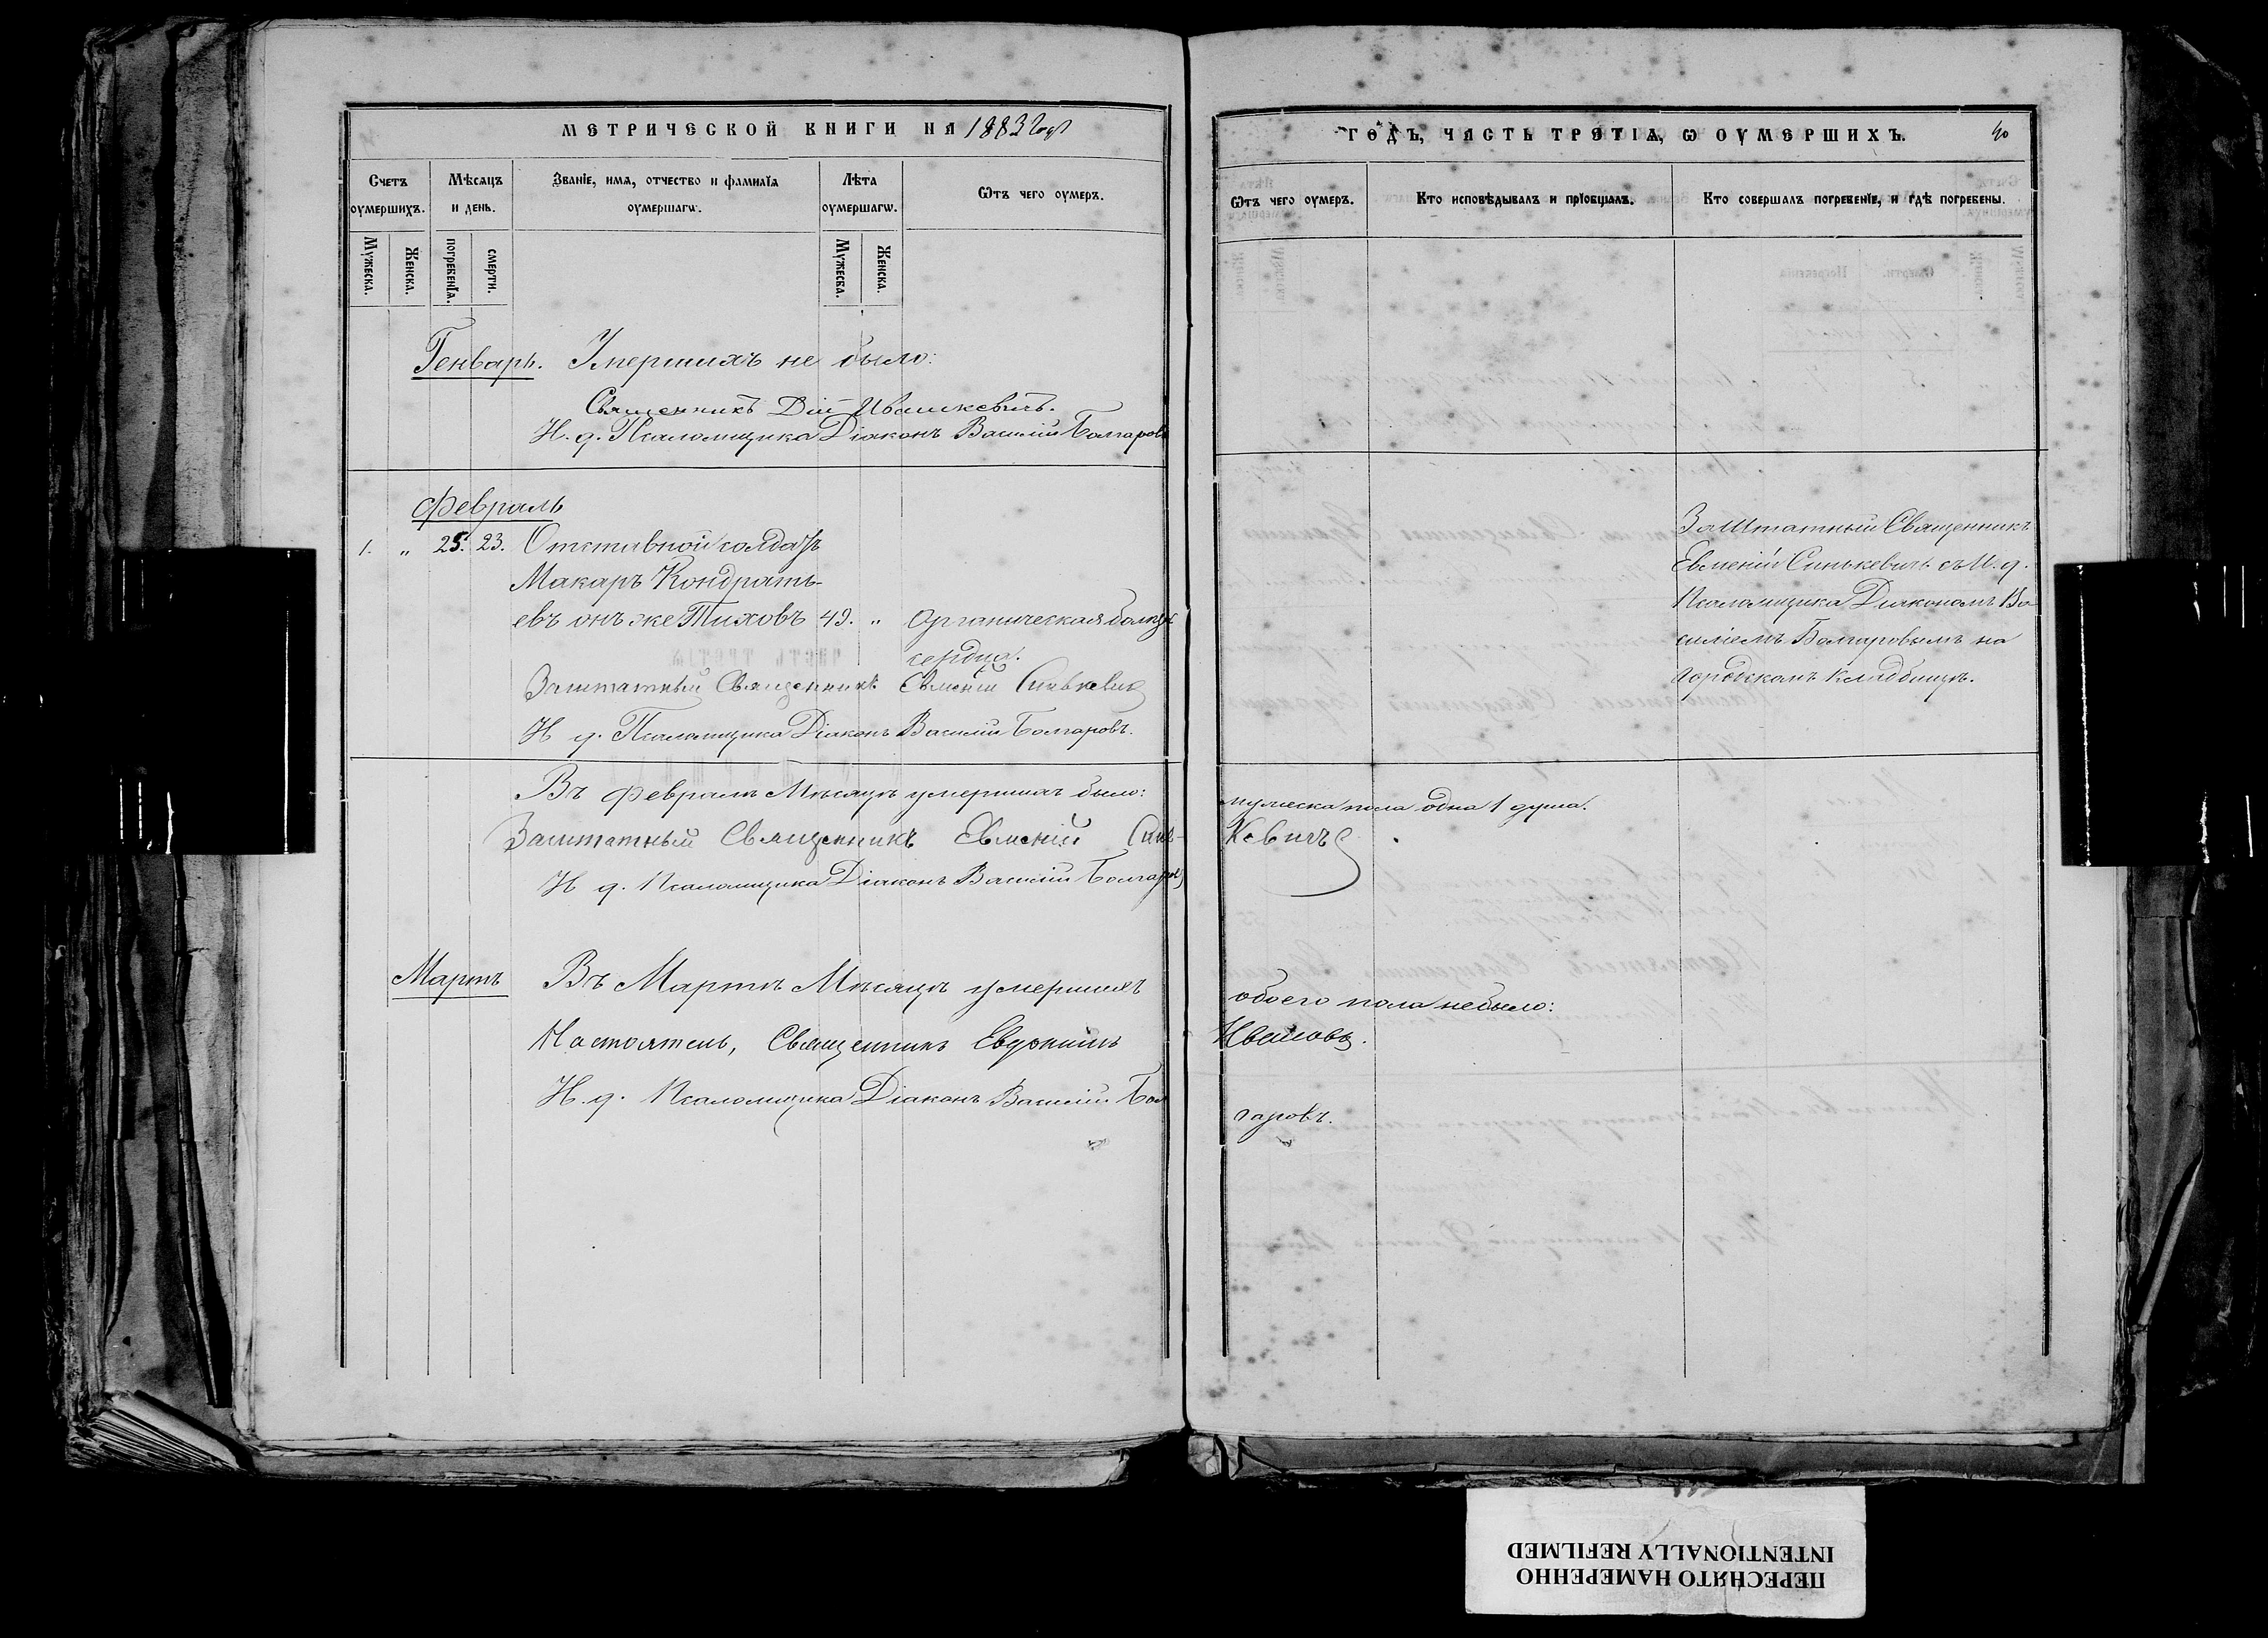 МЕТРИЧЕСКОЙ КНИГИ НА 1883 годъ
Счетъ оумершихъ.
Мѣсяцъ и день.
Званіе, имя, отчество и фамилія оумершагѡ.
Лѣта оумершагѡ.
Ѿтъ чего оумеръ.
Мужеска.
Женска.
погребенїѧ.
смерти.
Мужеска.
Женска.
Генварь. Умершихъ не было:
Священникъ Дій Ивашкевичъ.
И. д. Псаломщика Діаконъ Василій Болгаровъ
Февраль
1. „ 25. 23. Отставной солдатъ
Макаръ Кондрать-
евъ онъ же Тиховъ 49. „ Органическая болѣзнь
сердца.
Заштатный Священникъ Евменій Синькевич
И д. Псаломщика Діаконъ Василій Болгаровъ.
Въ Февралѣ Мѣсяцѣ умершихъ было:
Заштатный Священникъ Евменій Синь-
И д. Псаломщика Діаконъ Василій Болгаровъ
Мартъ Въ Мартѣ Мѣсяцѣ умершихъ
Настоятель, Священникъ Евдокимъ
И. д. Псаломщика Діаконъ Василій Бол
ГОДЪ, ЧАСТЬ ТРЕТІѦ, Ѡ ОУМЕРШИХЪ. 40
Ѿтъ чего оумеръ.
Кто исповѣдывалъ и прїобщалъ.
Кто совершалъ погребенїе, и гдѣ погребены.
Заштатный Священникъ
Евменій Синькевичъ съ И. д.
Псаломщика Діакономъ Ва-
силіемъ Болгаровымъ на
городскомъ кладбищѣ.
мужеска пола одна 1 душа.
кевичъ
обоего пола небыло:
Ивановъ.
гаровъ.
ПЕРЕСНЯТО НАМЕРЕННО
INTENTIONALLY REFILMED